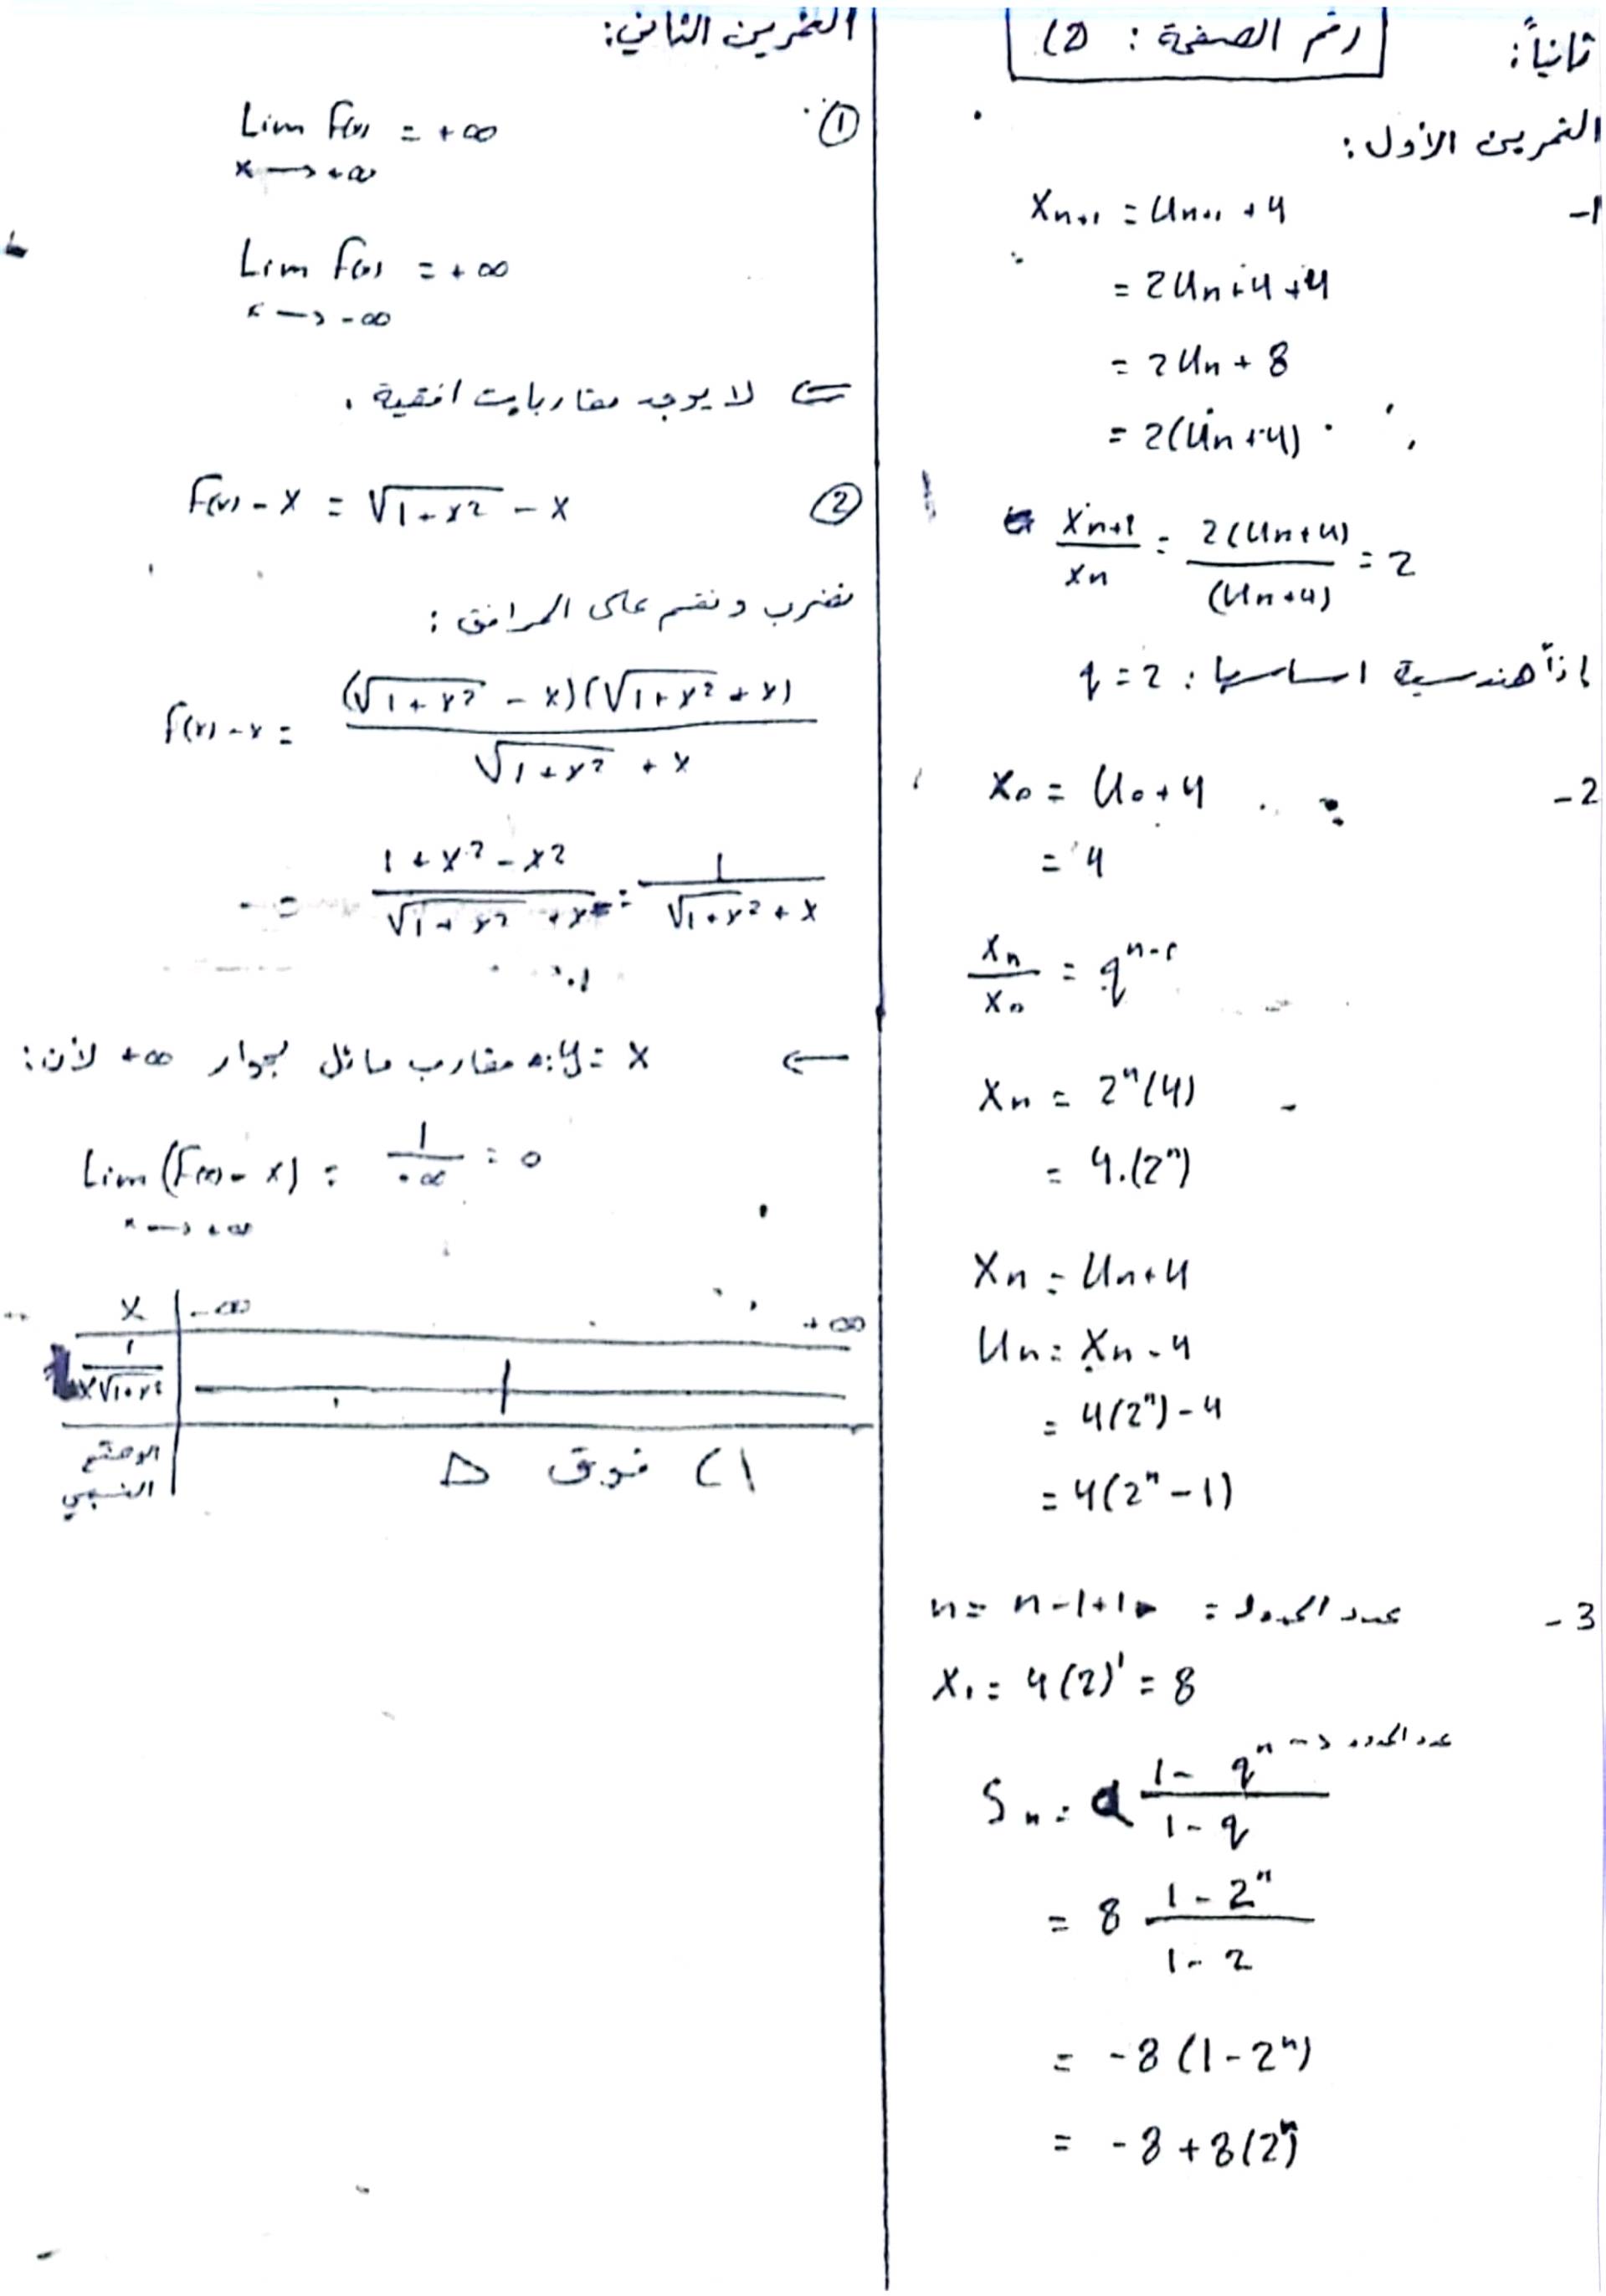 ثانياً:
رقم الصفحة: (2
التمرين الأول:
-1
Xn+1 = Un+1 + 4
= 2Un + 4 + 4
= 2Un + 8
= 2(Un + 4)
Xn+1 / Xn = 2(Un+4) / (Un+4) = 2
اذاً هندسية اساسها: q = 2
-2
X0 = U0 + 4
= 4
Xn / X0 = q^n-0
Xn = 2^n (4)
= 4.(2^n)
Xn = Un + 4
Un = Xn - 4
= 4(2^n) - 4
= 4(2^n - 1)
-3
عدد الحدود = n = n-1+1
X1 = 4(2)^1 = 8
Sn = a (1 - q^n) / (1 - q) → عدد الحدود
= 8 (1 - 2^n) / (1 - 2)
= -8 (1 - 2^n)
= -8 + 8(2^n)
التمرين الثاني:
①
Lim f(x) = +∞
x → +∞
Lim f(x) = +∞
x → -∞
⇐ لا يوجد مقاربات افقية .
②
f(x) - x = √(1+x²) - x
نضرب ونقسم على المرافق:
f(x) - x = (√(1+x²) - x)(√(1+x²) + x) / (√(1+x²) + x)
= (1 + x² - x²) / (√(1+x²) + x) = 1 / (√(1+x²) + x)
← y = x مقارب مائل بجوار +∞ لأن:
Lim (f(x) - x) = 1 / +∞ = 0
x → +∞
x | -∞ +∞
1 / x√(1+x²)
الوضع النسبي | C) فوق Δ